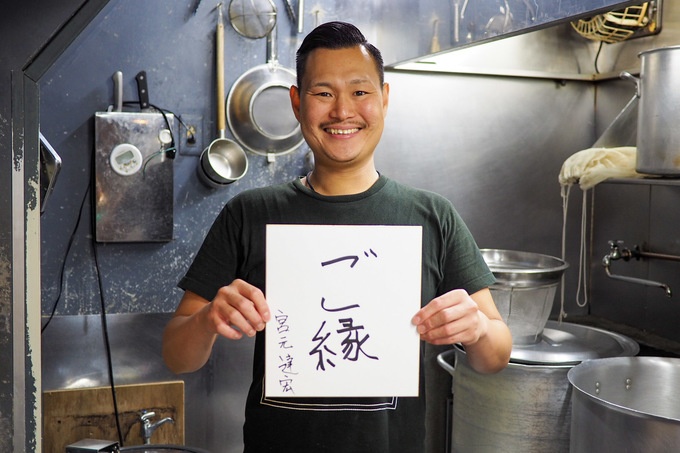 ご縁
宮元達宏